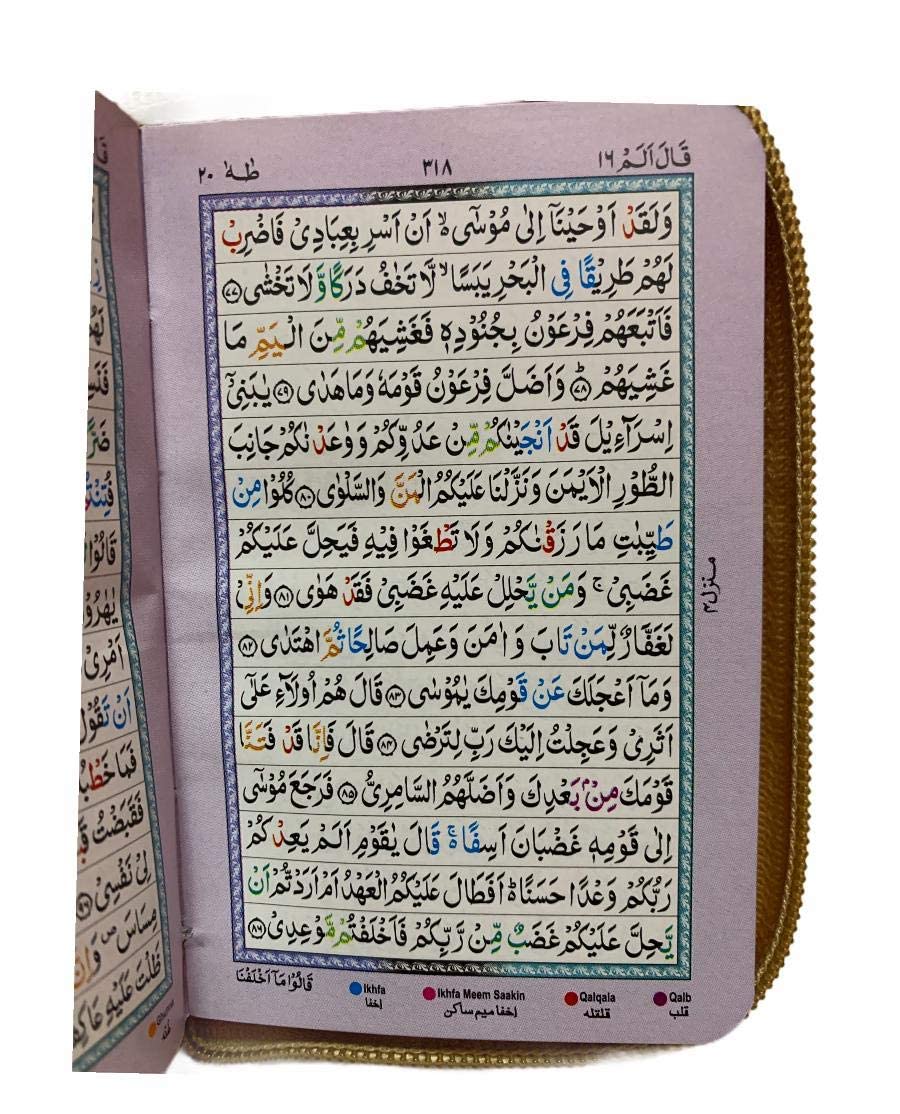 قَالَ اَلَمْ ١٦ ٣١٨ طٰهٰ ٢٠
وَلَقَدْ اَوْحَيْنَآ اِلٰى مُوْسٰٓى ۙ اَنْ اَسْرِ بِعِبَادِىْ فَاضْرِبْ
لَهُمْ طَرِيْقًا فِى الْبَحْرِ يَبَسًا ۙ لَّا تَخٰفُ دَرَكًا وَّلَا تَخْشٰى ﴿٧٧﴾
فَاَتْبَعَهُمْ فِرْعَوْنُ بِجُنُوْدِهٖ فَغَشِيَهُمْ مِّنَ الْيَمِّ مَا
غَشِيَهُمْ ﴿٧٨﴾ وَاَضَلَّ فِرْعَوْنُ قَوْمَهٗ وَمَا هَدٰى ﴿٧٩﴾ يٰبَنِىْٓ
اِسْرَآءِيْلَ قَدْ اَنْجَيْنٰكُمْ مِّنْ عَدُوِّكُمْ وَوٰعَدْنٰكُمْ جَانِبَ
الطُّوْرِ الْاَيْمَنَ وَنَزَّلْنَا عَلَيْكُمُ الْمَنَّ وَالسَّلْوٰى ﴿٨٠﴾ كُلُوْا مِنْ
طَيِّبٰتِ مَا رَزَقْنٰكُمْ وَلَا تَطْغَوْا فِيْهِ فَيَحِلَّ عَلَيْكُمْ
غَضَبِىْ ۚ وَمَنْ يَّحْلِلْ عَلَيْهِ غَضَبِىْ فَقَدْ هَوٰى ﴿٨١﴾ وَاِنِّىْ
لَغَفَّارٌ لِّمَنْ تَابَ وَاٰمَنَ وَعَمِلَ صَالِحًا ثُمَّ اهْتَدٰى ﴿٨٢﴾
وَمَآ اَعْجَلَكَ عَنْ قَوْمِكَ يٰمُوْسٰى ﴿٨٣﴾ قَالَ هُمْ اُولَآءِ عَلٰٓى
اَثَرِىْ وَعَجِلْتُ اِلَيْكَ رَبِّ لِتَرْضٰى ﴿٨٤﴾ قَالَ فَاِنَّا قَدْ فَتَنَّا
قَوْمَكَ مِنْۢ بَعْدِكَ وَاَضَلَّهُمُ السَّامِرِىُّ ﴿٨٥﴾ فَرَجَعَ مُوْسٰٓى
اِلٰى قَوْمِهٖ غَضْبَانَ اَسِفًا ۚ۬ قَالَ يٰقَوْمِ اَلَمْ يَعِدْكُمْ
رَبُّكُمْ وَعْدًا حَسَنًا ۬ؕ اَفَطَالَ عَلَيْكُمُ الْعَهْدُ اَمْ اَرَدْتُّمْ اَنْ
يَّحِلَّ عَلَيْكُمْ غَضَبٌ مِّنْ رَّبِّكُمْ فَاَخْلَفْتُمْ مَّوْعِدِىْ ﴿٨٦﴾
قَالُوْا مَآ اَخْلَفْنَا
منزل ٤
Ikhfa Ikhfa Meem Saakin Qalqala Qalb
اخفا اخفا میم ساکن قلقله قلب
لِىْ نَفْسِىْ
مِسَاسَ ۪ وَاِنَّ
ظَلْتَ عَلَيْهِ عَاكِ